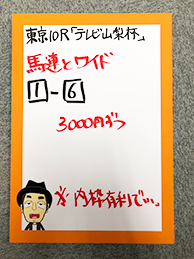 東京10R「テレビ山梨杯」
馬連とワイド
1-6
3000円ずつ
※内枠有利で…。